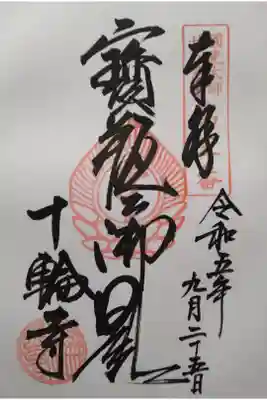 奉拝
令和五年
九月二十五日
寶瓶御影
十輪寺